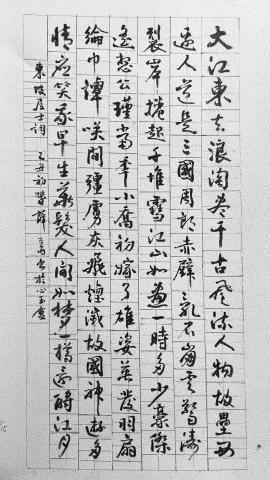 大江東去浪淘盡千古風流人物故壘西
邊人道是三國周郎赤壁亂石崩雲驚濤
裂岸捲起千堆雪江山如畫一時多少豪傑
遙想公瑾當年小喬初嫁了雄姿英發羽扇
綸巾譚咲間彊虜灰飛煙滅故國神遊多
情應笑我早生華髮人間如夢一樽還酹江月
東坡居士詞 乙丑初 薛 書於心玉盦